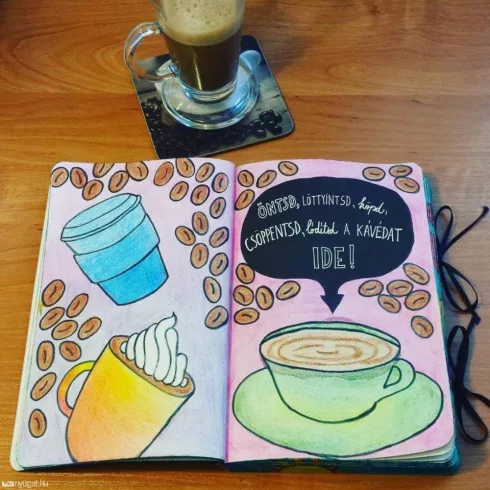 ÖNTSD, LÖTTYINTSD, köpd,
CSÖPPENTSD, lódítsd A KÁVÉDAT
IDE!
nyugat.hu